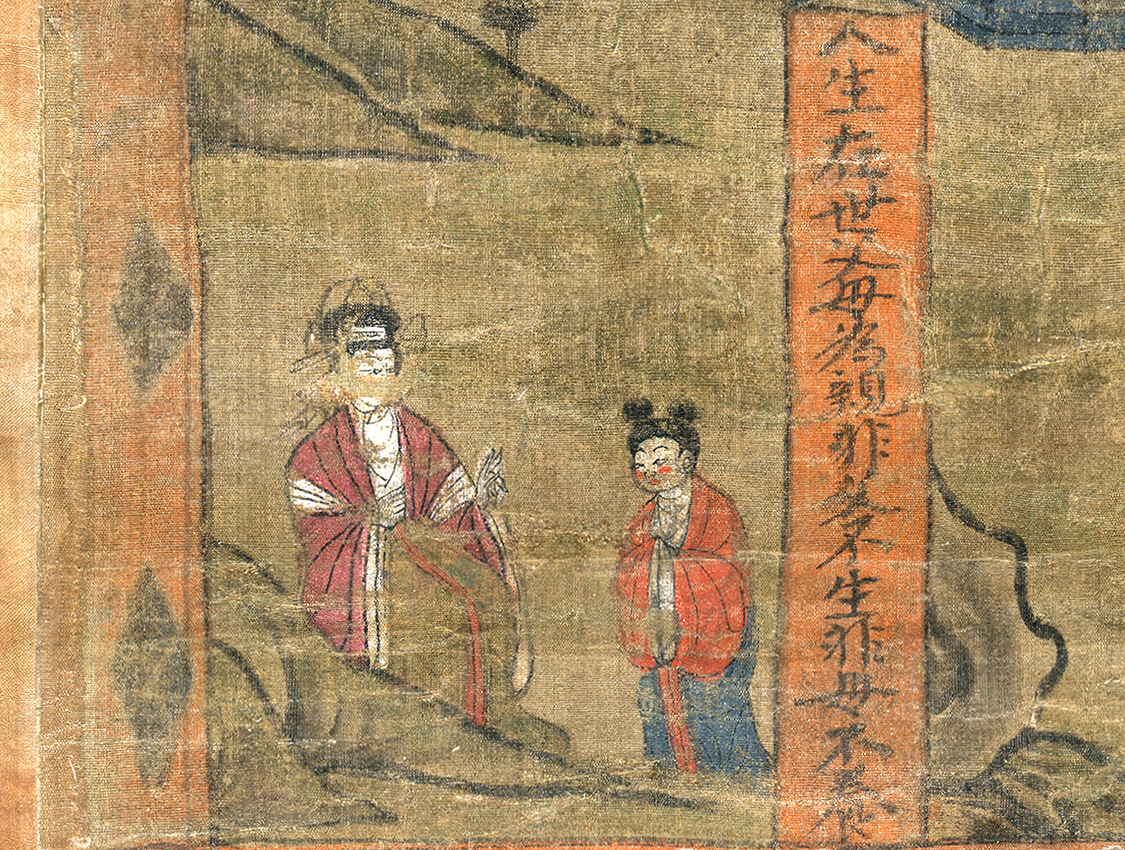 人生在世父母為親非父不生非母不養